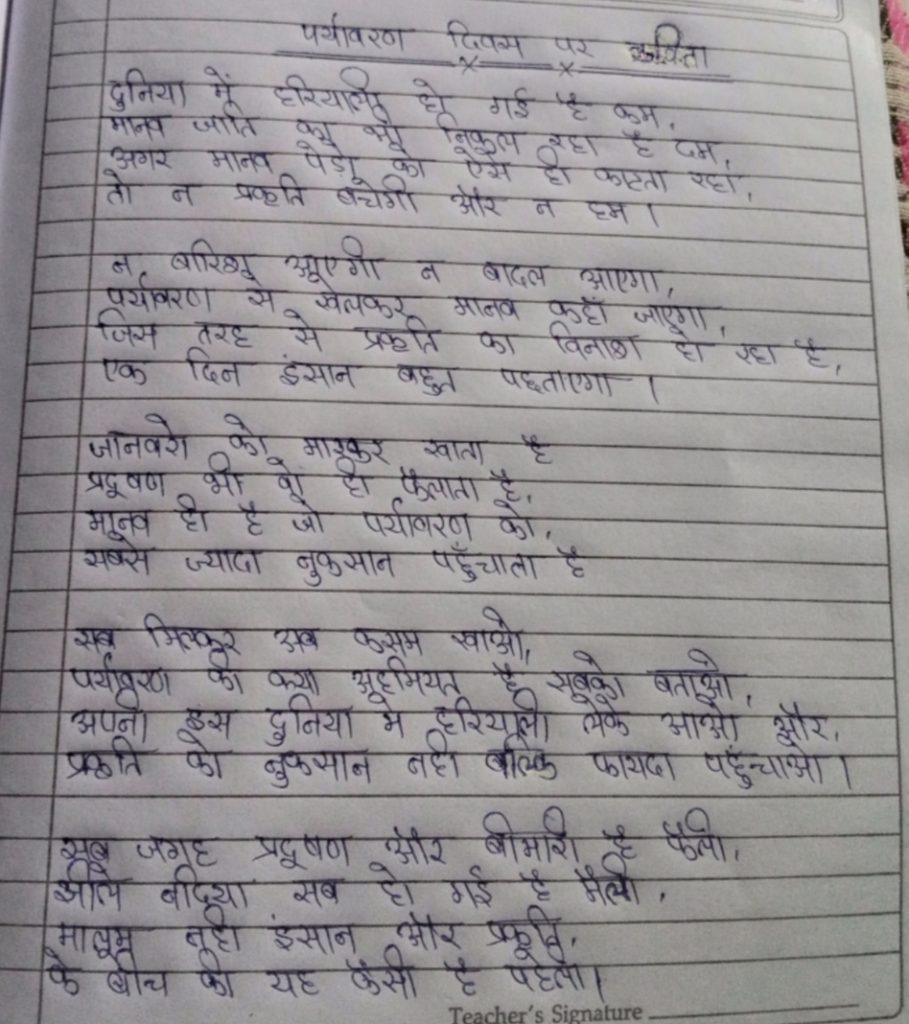 पर्यावरण दिवस पर कविता
दुनिया में हरियाली हो गई है कम,
मानव जाति का भी निकल रहा है दम,
अगर मानव पेड़ो को ऐसे ही काटता रहा,
तो न प्रकृति बचेगी और न हम ।
न बारिश आएगी न बादल आएगा,
पर्यावरण से खेलकर मानव कहाँ जाएगा,
जिस तरह से प्रकृति का विनाश हो रहा है,
एक दिन इंसान बहुत पछताएगा ।
जानवरो को मारकर खाता है
प्रदूषण भी वो ही फैलाता है,
मानव ही है जो पर्यावरण को,
सबसे ज्यादा नुकसान पहुँचाता है
सब मिलकर अब कसम खाओ,
पर्यावरण की क्या अहमियत है सबको बताओ,
अपनी इस दुनिया मे हरियाली लेके आओ और,
प्रकृति को नुकसान नही बल्कि फायदा पहुँचाओ ।
सब जगह प्रदूषण और बीमारी है फैली,
झीले नदिया सब हो गई है मैली,
मालूम नही इंसान और प्रकृति,
के बीच की यह कैसी है पहेली।
Teacher's Signature